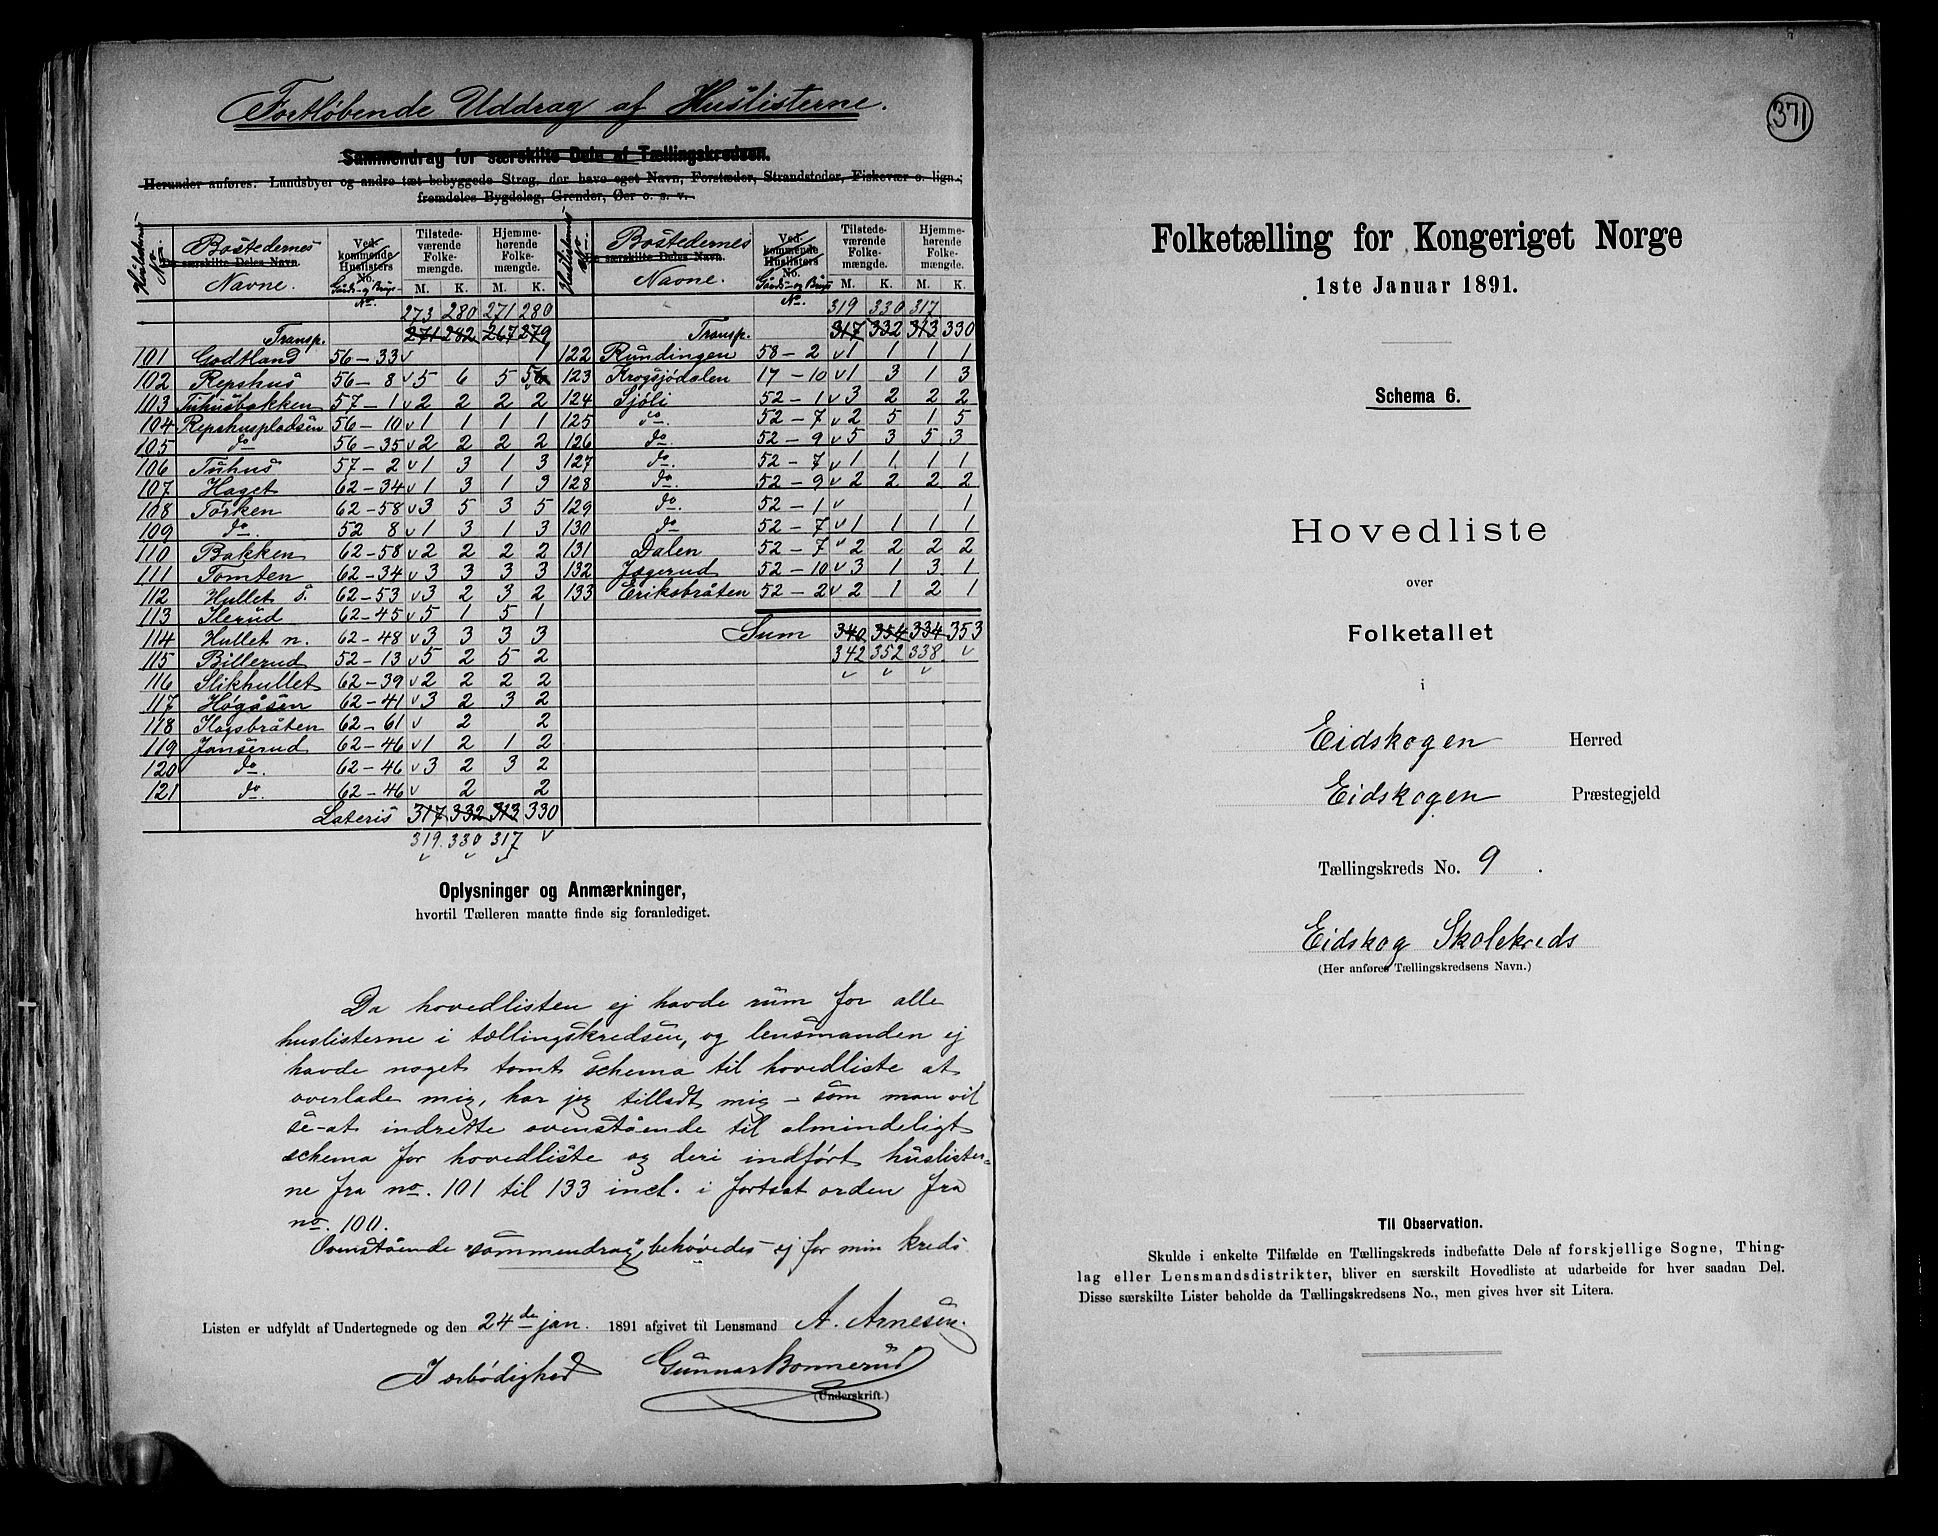 Fortløbende Uddrag af Huslisterne.
Sammendrag for særskilte Dele af Tællingskredsen.
Herunder anføres: Landsbyer og andre tæt bebyggede Strøg, der have eget Navn, Forstæder, Strandsteder, Fiskevær o. lign.;
fremdeles Bygdelag, Grender, Øer o. s. v.
Huslisternes No. Bostedernes Navne. De særskilte Deles Navn. Vedkommende Huslisters No. Gårds- og Brugs-No. Tilstedeværende Folkemængde. M. K. Hjemmehørende Folkemængde. M. K.
273 280 271 280
Transp. 271 282 267 279
101 Godtland 56-33 v
102 Repshus 56-8 v 5 6 5 5
103 Tuhusbakken 57-1 v 2 2 2 2
104 Repshuspladsen 56-10 v 1 1 1 1
105 do 56-35 v 2 2 2 2
106 Tuhus 57-2 v 1 3 1 3
107 Haget 62-34 v 1 3 1 3
108 Torken 62-58 v 3 5 3 5
109 do. 52 8 v 1 3 1 3
110 Bakken 62-58 v 2 2 2 2
111 Tomten 62-34 v 3 3 3 3
112 Hullet s. 62-53 v 3 2 3 2
113 Slerud 62-45 v 5 1 5 1
114 Hullet n. 62-48 v 3 3 3 3
115 Billerud 52-13 v 5 2 5 2
116 Slikhullet 62-39 v 2 2 2 2
117 Høgåsen 62-41 v 3 2 3 2
118 Hagsbråten 62-61 v 2 2
119 Janserud 62-46 v 1 2 1 2
120 do. 62-46 v 3 2 3 2
121 do. 62-46 v 2 2
Lateris 317 332 313 330
319 330 317 v
Huslisternes No. Bostedernes Navne. De særskilte Deles Navn. Vedkommende Huslisters No. Gårds- og Brugs No. Tilstedeværende Folkemængde. M. K. Hjemmehørende Folkemængde. M. K.
319 330 317
Transp. 317 332 313 330
122 Rundingen 58-2 v 1 1 1 1
123 Krogsjødalen 17-10 v 1 3 1 3
124 Sjøli 52-1 v 3 2 2 2
125 do. 52-7 v 2 5 1 5
126 do. 52-9 v 5 3 5 3
127 do. 52-7 v 1 1 1 1
128 do. 52-9 v 2 2 2 2
129 do. 52-1 v 1
130 do 52-7 v 1 1 1 1
131 Dalen 52-7 v 2 2 2 2
132 Jægerud 52-10 v 3 1 3 1
133 Eriksbråten 52-2 v 2 1 2 1
Sum 340 354 334 353
342 352 338 v
Oplysninger og Anmærkninger,
hvortil Tælleren maatte finde sig foranlediget.
Da hovedlisten ej havde rum for alle
huslisterne i tællingskredsen, og lensmanden ej
havde noget tomt schema til hovedliste at
overlade mig, har jeg tilladt mig - som man vil
se - at indrette ovenstående til almindeligt
schema for hovedliste og deri indført huslister=
ne fra no. 101 til 133 incl. i fortsat orden fra
no. 100.
Ovenstående "sammendrag" behøvedes ej for min kreds.
Listen er udfyldt af Undertegnede og den 24de jan. 1891 afgivet til Lensmand A. Arnesen.
Ærbødighed Gunnar Bonnerud
(Underskrift.)
371
Folketælling for Kongeriget Norge
1ste Januar 1891.
Schema 6.
Hovedliste
over
Folketallet
i
Eidskogen Herred
Eidskogen Præstegjeld
Tællingskreds No. 9.
Eidskog Skolekreds
(Her anføres Tællingskredsens Navn.)
Til Observation.
Skulde i enkelte Tilfælde en Tællingskreds indbefatte Dele af forskjellige Sogne, Thing-
lag eller Lensmandsdistrikter, bliver en særskilt Hovedliste at udarbeide for hver saadan Del.
Disse særskilte Lister beholde da Tællingskredsens No., men gives hver sit Litera.